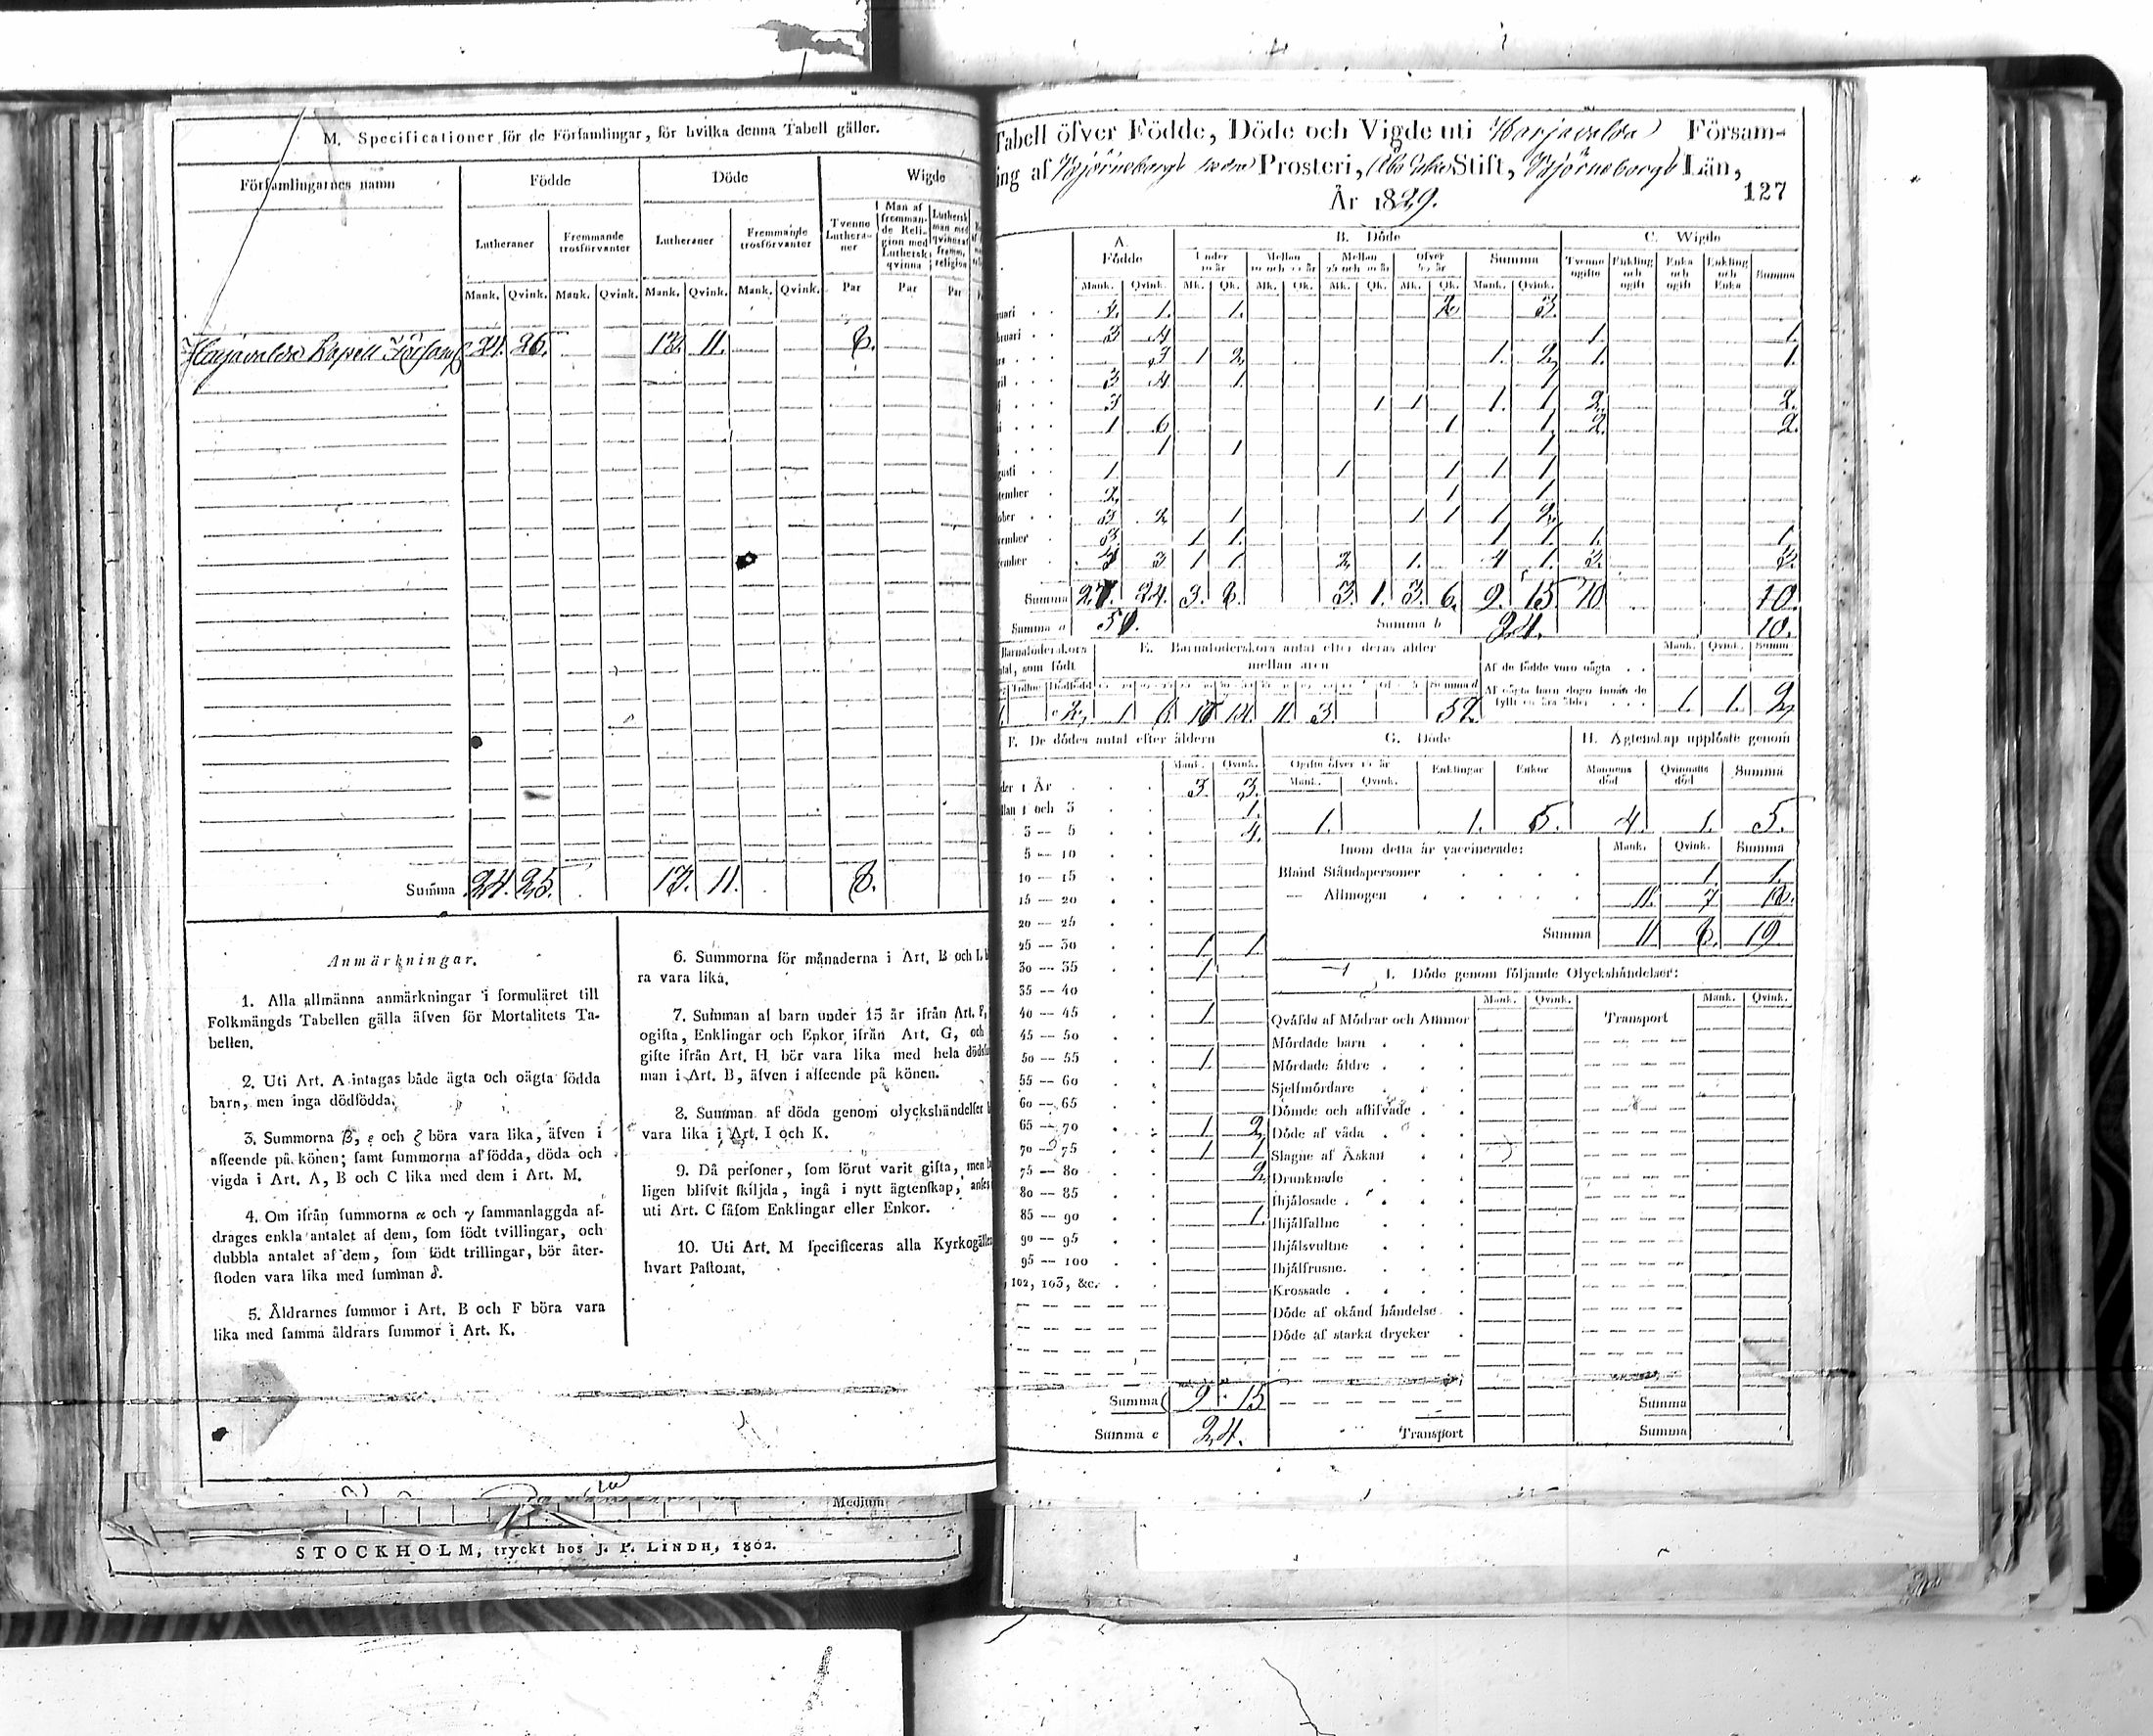 M. Specificationer för de Församlingar, för hvilka denna Tabell gäller.
Församlingarnes namn
Födde
Döde
Wigde
Lutheraner
Fremmande trosförvanter
Lutheraner
Fremmande trosförvanter
Tvenne Lutheraner
Man af fremmande Religion med Luthersk qvinna
Luthersk man med qvinna af framm. religion
Mank. Qvink. Mank. Qvink. Mank. Qvink. Mank. Qvink. Par Par Par
Harjavalda Kapell Församl 24. 25. 13. 11. 8.
Summa 24. 25. 13. 11. 8.
Anmärkningar.
1. Alla allmänna anmärkningar i formuläret till
Folkmängds Tabellen gälla äfven för Mortalitets Ta-
bellen.
2. Uti Art. A intagas både ägta och oägta födda
barn, men inga dödfödda.
3. Summorna β, ε och ζ böra vara lika, äfven i
affeende på könen; samt summorna af födda, döda och
vigda i Art. A, B och C lika med dem i Art. M.
4. Om ifrån summorna α och γ sammanlaggda af-
drages enkla antalet af dem, som födt tvillingar, och
dubbla antalet af dem, som födt trillingar, bör åter-
stoden vara lika med summan δ.
5. Åldrarnes summor i Art. B och F böra vara
lika med samma åldrars summor i Art. K.
6. Summorna för månaderna i Art. B och L
ra vara lika.
7. Summan af barn under 15 år ifrån Art. F,
ogifta, Enklingar och Enkor ifrån Art. G, och
gifte ifrån Art. H bör vara lika med hela
man i Art. B, äfven i affeende på könen.
8. Summan af döda genom olyckshändelser
vara lika i Art. I och K.
9. Då personer, som förut varit gifta, men
ligen blifvit skiljda, ingå i nytt ägtenskap,
uti Art. C såsom Enklingar eller Enkor.
10. Uti Art. M specificeras alla
hvart Pastorat.
Medium
STOCKHOLM, tryckt hos J. P. LINDH, 1802.
Tabell öfver Födde, Döde och Vigde uti Harjavalda Försam-
ing af Björneborgs Prosteri, Åbo Stift, Björneborgs Län,
År 1829.
127
A. Födde
B. Döde
C. Wigde
Under 10 år
Mellan 10 och
Mellan 25 och
öfver
Summa
Tvenne ogifte
Enkling och ogift
Enka och ogift
Enkling och Enka
Summa
Mank. Qvink. Mk. Qk. Mk. Qk. Mk. Qk. Mk. Qk. Mank. Qvink.
uari 4. 1. 1. 2 3.
bruari 3 4 1. 1.
3 1 2 1. 2 1. 1.
ril 3 4 1. 1
3 1 1 1. 1 2. 2.
1 6 1 1. 2. 2.
1 1 1
gusti 1. 1 1 1 1
tember 2 1 1
ober 3 2 1 1 1 1 2
ember 3. 1 1. 1 1 1. 1.
ember 3 1 1. 2 1. 4 1.
Summa 24. 3. 8. 3. 1. 3. 6. 9. 15. 10 10.
Summa a Summa b 24. 10.
Barnaföderskors
tal, som födt
E. Barnaföderskors antal efter deras ålder
mellan åren
Mank. Qvink. Summ
Af de födde voro oägta
Af oägta barn dogo innan de
fyllt ett års ålder 1. 1. 2
F. De dödes antal efter åldern
Mank. Qvink.
der 1 År 3. 3.
llan 1 och 3 1.
3 — 5 4.
5 — 10
10 — 15
15 — 20
20 — 25
25 — 30 1 1
30 — 35 1
35 — 40
40 — 45 1
45 — 50
50 — 55 1.
55 — 60
60 — 65
65 — 70 1 2
70 — 75 1 1
75 — 80 2
80 — 85
85 — 90 1.
90 — 95
95 — 100
102, 103, &c.
Summa 9. 15
Summa c 24.
G. Döde
Ogifte öfver 15 år
Enklingar
Enkor
Mank. Qvink.
1. 1. 5.
H. Ägtenskap upplöste genom
Mannens död
Qvinnans död
Summa
4. 1. 5.
Inom detta år vaccinerade: Mank. Qvink. Summa
Bland Ståndspersoner 1 1.
— Allmogen 11. 7 18.
Summa 11 8. 19
I. Döde genom följande Olyckshändelser:
Mank. Qvink. Mank. Qvink.
Qväfde af Mödrar och Ammor Transport
Mördade barn
Mördade äldre
Sjelfmördare
Dömde och aflifvade
Döde af våda
Slagne af Åskan
Drunknade
Ihjälosade
Ihjälfallne
Ihjälsvultne
Ihjälfrusne
Krossade
Döde af okänd händelse
Döde af starka drycker
Summa
Transport Summa